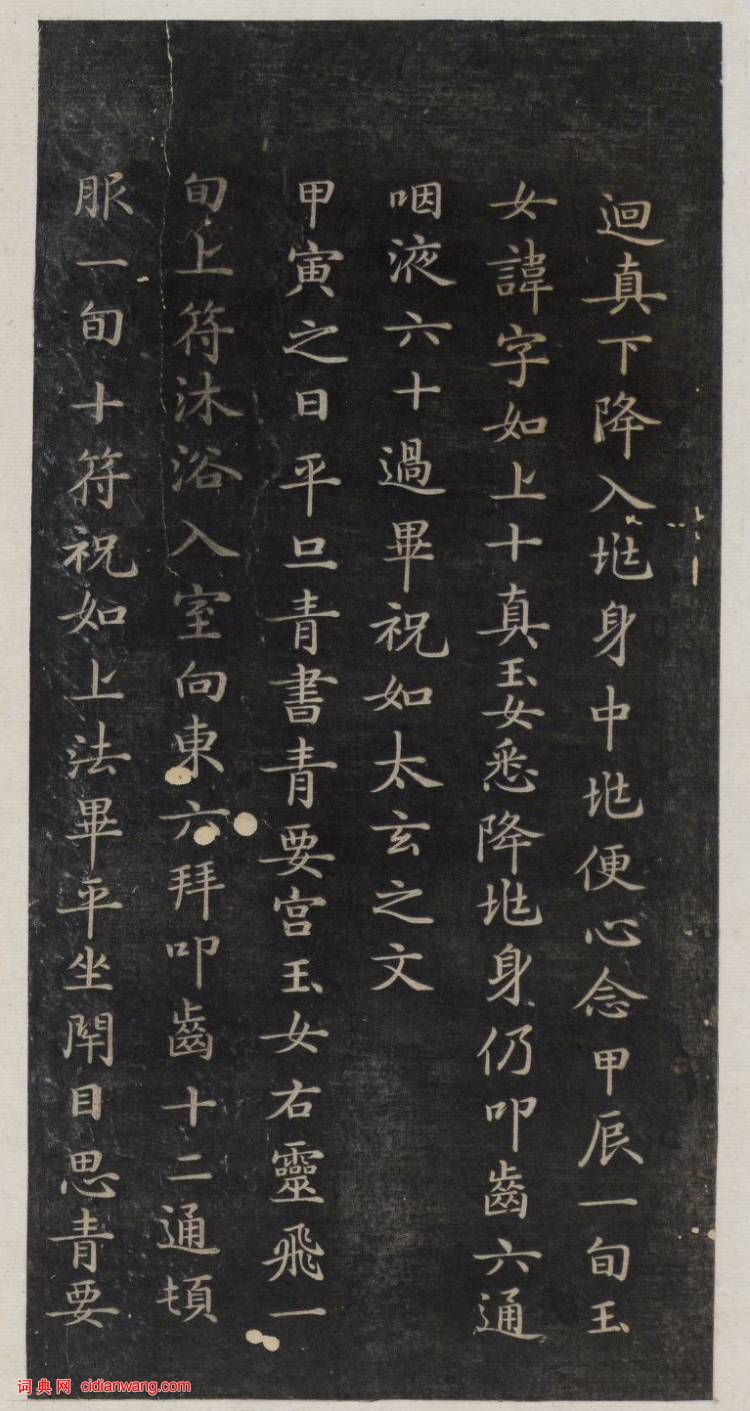 迴真下降入兆身中兆便心念甲辰一旬玉
女諱字如上十真玉女悉降兆身仍叩齒六通
咽液六十過畢祝如太玄之文
甲寅之日平旦青書青要宮玉女右靈飛一
旬上符沐浴入室向東六拜叩齒十二通頓
服一旬十符祝如上法畢平坐閉目思青要
词典网 cidianwang.com